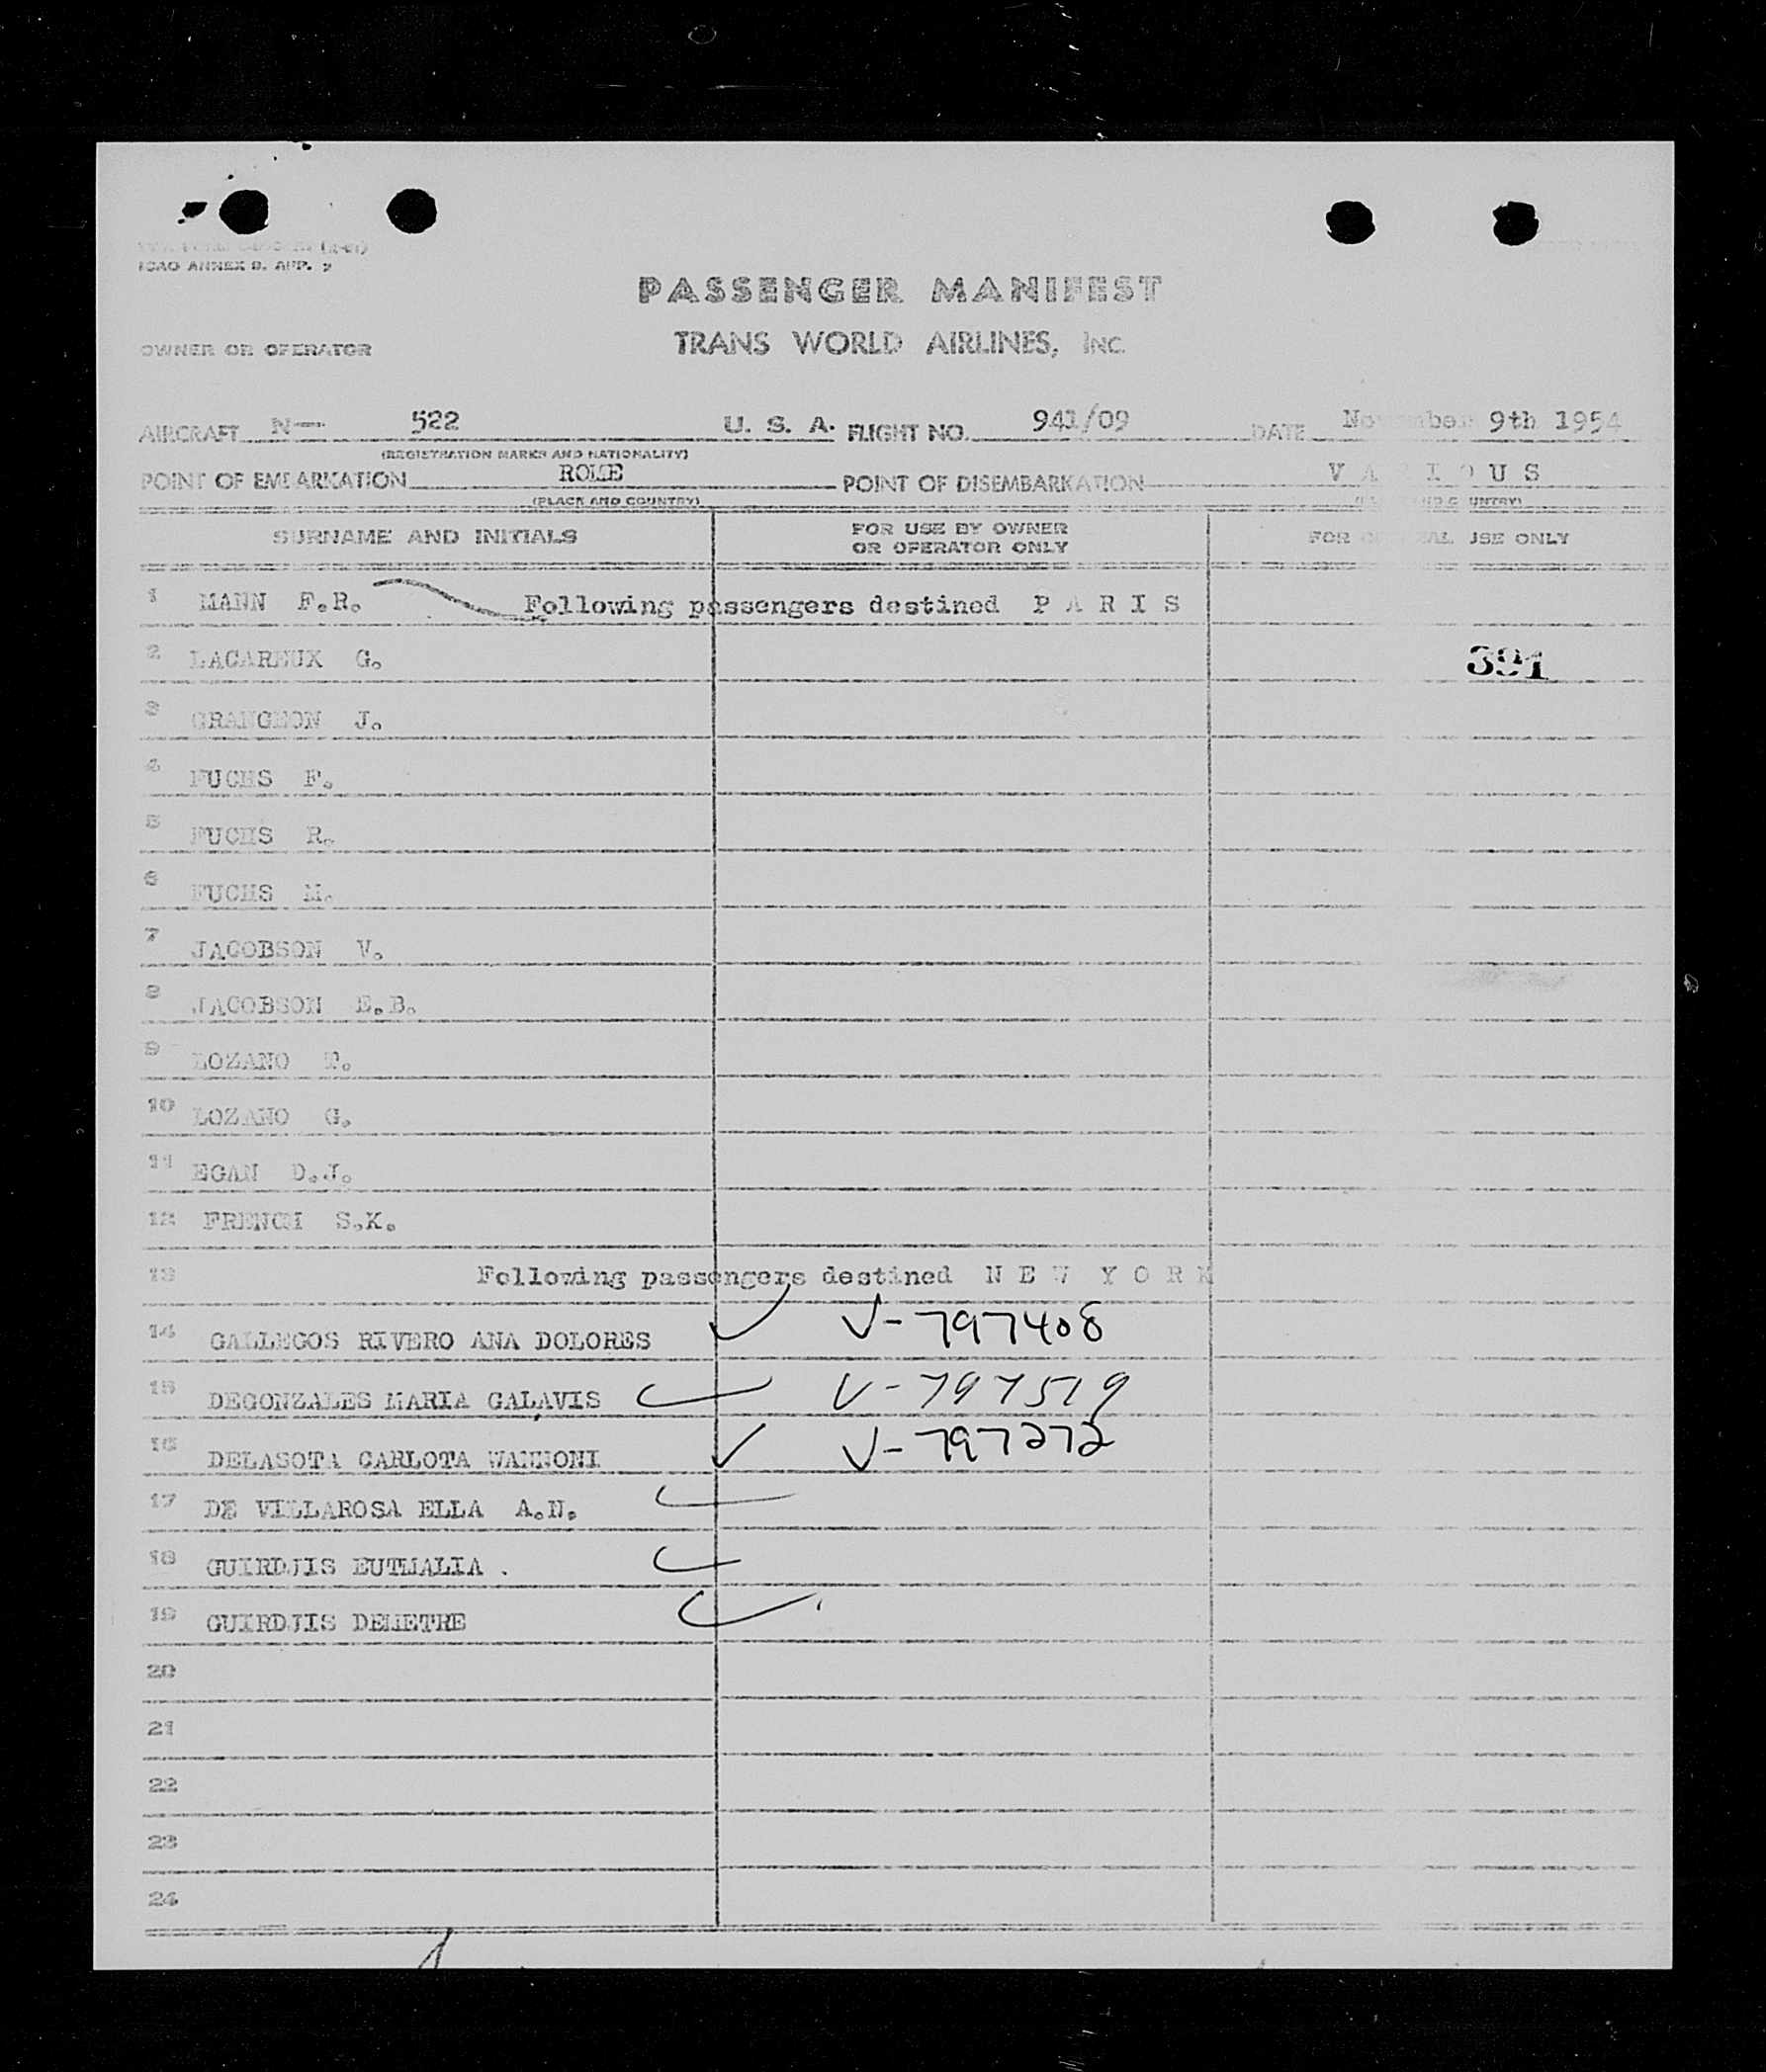 ICAO ANNEX 9, APP. 
PASSENGER MANIFEST
OWNER OR OPERATOR
TRANS WORLD AIRLINES, INC.
AIRCRAFT N— 522 U. S. A. FLIGHT NO. 941/09 DATE November 9th 1954
(REGISTRATION MARKS AND NATIONALITY)
POINT OF EMBARKATION ROME POINT OF DISEMBARKATION V A R I O U S
(PLACE AND COUNTRY) (PLACE AND COUNTRY)
SURNAME AND INITIALS FOR USE BY OWNER OR OPERATOR ONLY FOR OFFICIAL USE ONLY
1 MANN F.R. Following passengers destined P A R I S
2 LACAREUX G. 391
3 GRANGEON J.
4 FUCHS F.
5 FUCHS R.
6 FUCHS M.
7 JACOBSON V.
8 JACOBSON E.B.
9 LOZANO T.
10 LOZANO G.
11 EGAN D.J.
12 FRENCH S.K.
13 Following passengers destined N E W Y O R K
14 GALLEGOS RIVERO ANA DOLORES V-797408
15 DEGONZALES MARIA GALAVIS V-797519
16 DELASOTA CARLOTA WANNONI V-797272
17 DE VILLAROSA ELLA A.N.
18 GUIRDJIS EUTHALIA .
19 GUIRDJIS DEMETRE
20
21
22
23
24